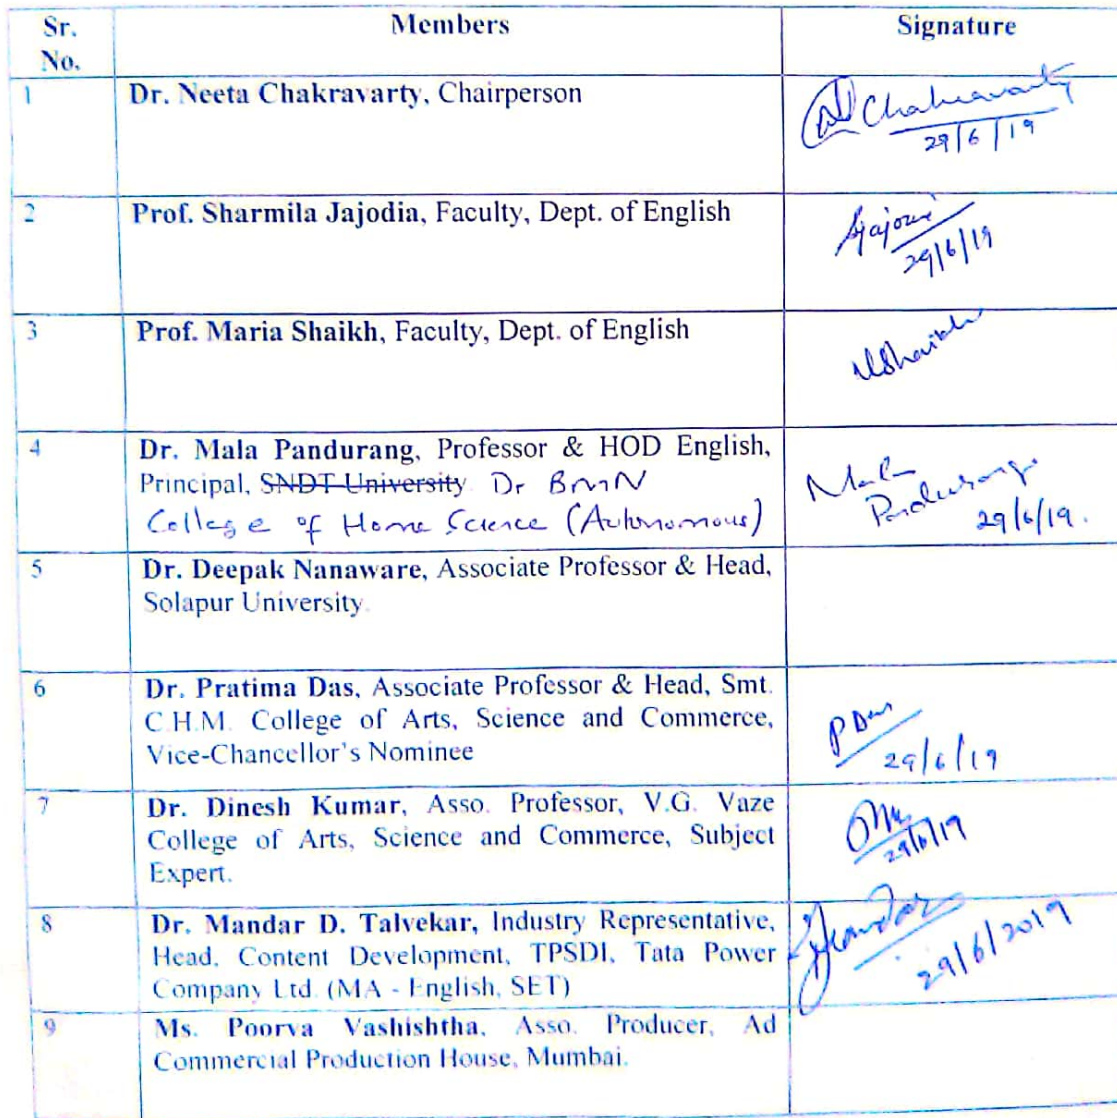 Sr. No. Members Signature
1 Dr. Neeta Chakravarty, Chairperson Chakravarty
29/6/19
2 Prof. Sharmila Jajodia, Faculty, Dept. of English
29/6/19
3 Prof. Maria Shaikh, Faculty, Dept. of English MShaikh
4 Dr. Mala Pandurang, Professor & HOD English, Mala
Principal, SNDT University. Dr BMN Pandurang
College of Home Science (Autonomous) 29/6/19.
5 Dr. Deepak Nanaware, Associate Professor & Head,
Solapur University.
6 Dr. Pratima Das, Associate Professor & Head, Smt.
C.H.M. College of Arts, Science and Commerce, PDas
Vice-Chancellor's Nominee 29/6/19
7 Dr. Dinesh Kumar, Asso. Professor, V.G. Vaze
College of Arts, Science and Commerce, Subject 29/6/19
Expert.
8 Dr. Mandar D. Talvekar, Industry Representative,
Head, Content Development, TPSDI, Tata Power 29/6/2019
Company Ltd. (MA - English, SET)
9 Ms. Poorva Vashishtha, Asso. Producer, Ad
Commercial Production House, Mumbai.